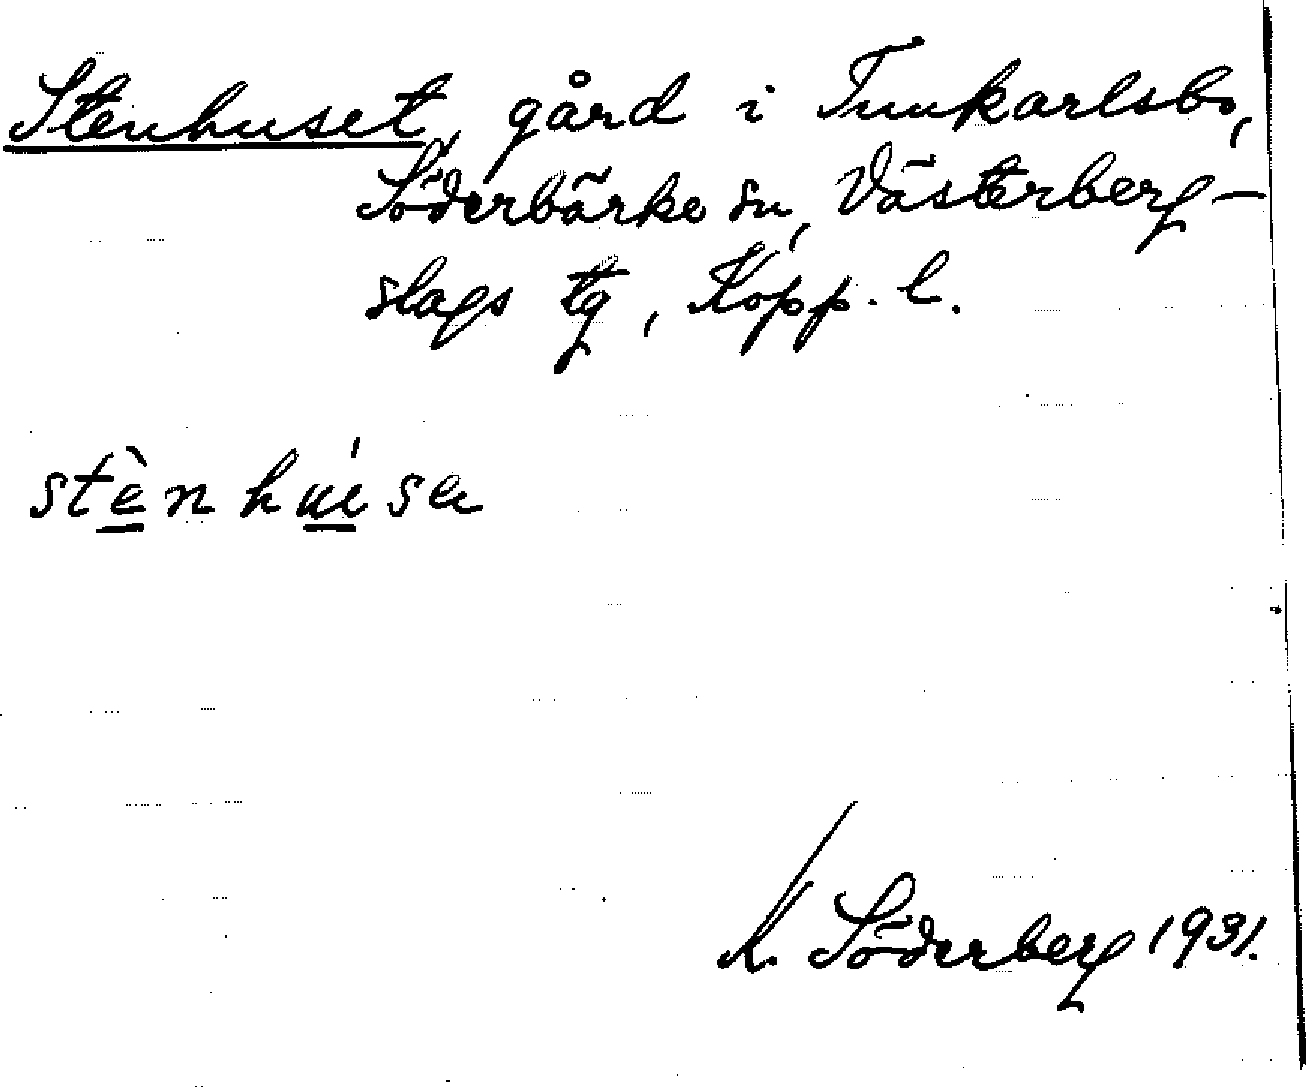 Stenhuset, gård i Tunkarlsbo,
Söderbärke sn, Västerberg-
slags tg, Kopp. l.
stèn húsa
K. Söderberg 1931.